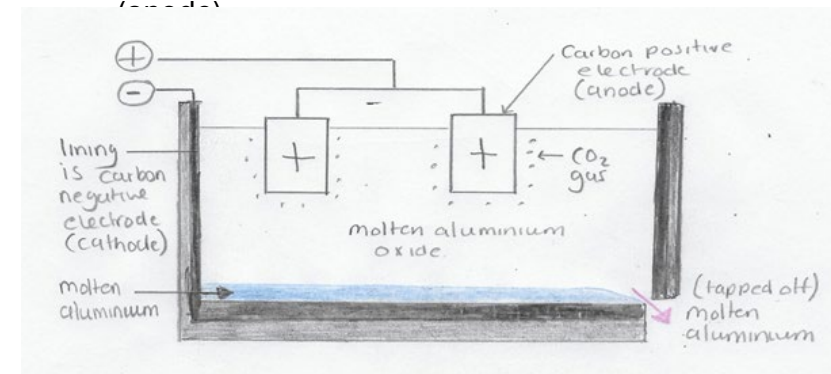 (anode)
+
-
Carbon positive
electrode
(anode)
-
+
+
CO2
gas
lining
is carbon
negative
electrode
(cathode)
molten aluminium
oxide.
molten
aluminium
(tapped off)
molten
aluminium